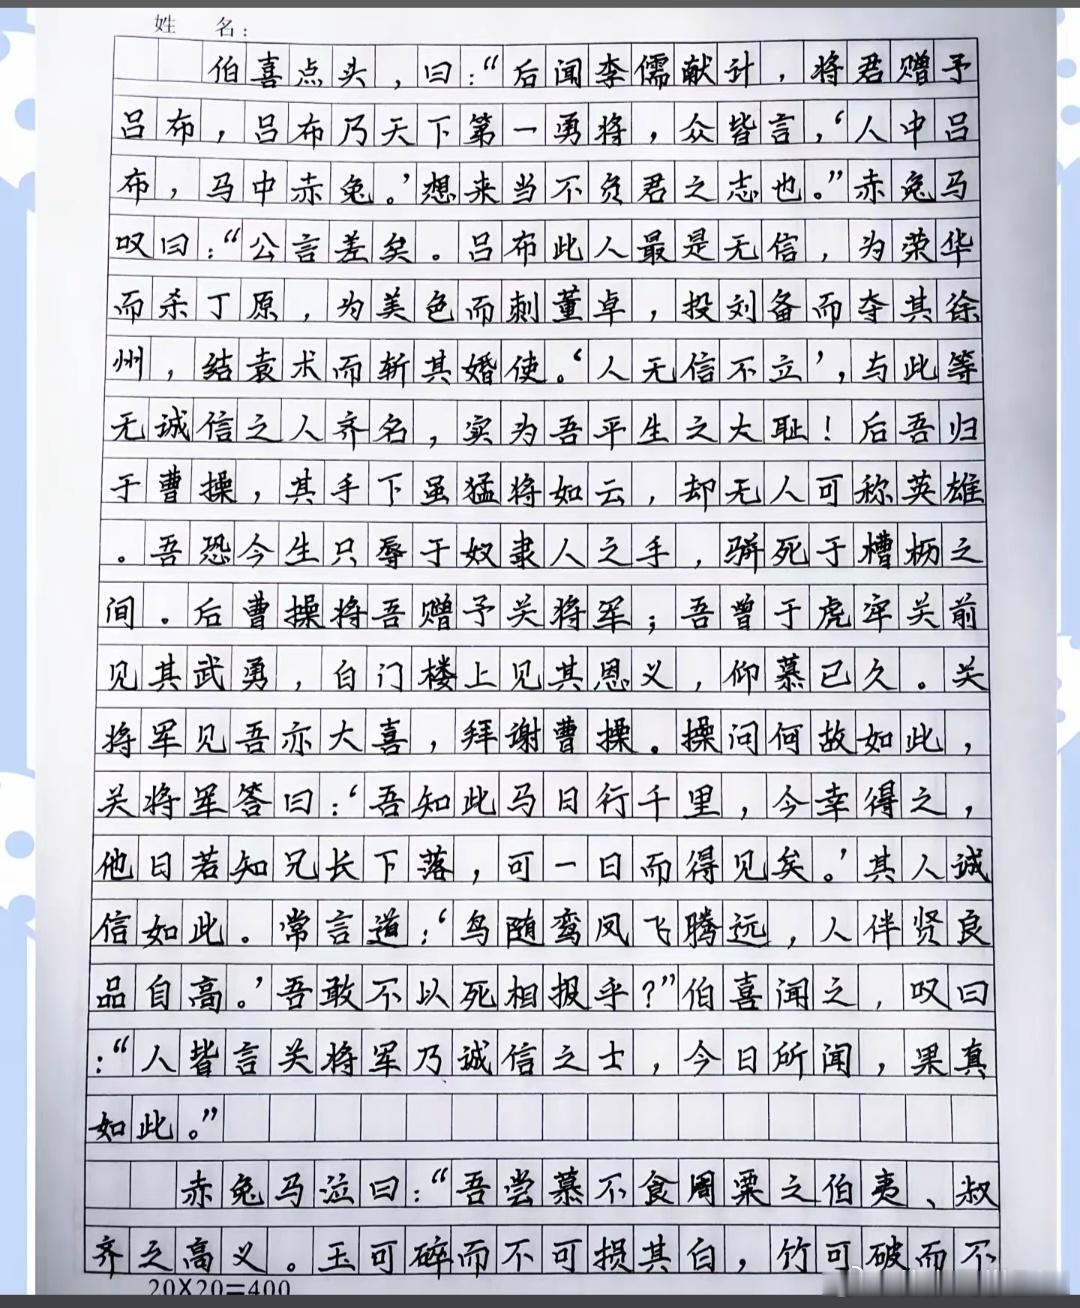 姓 名:
伯喜点头，曰：“后闻李儒献计，将君赠予
吕布，吕布乃天下第一勇将，众皆言，‘人中吕
布，马中赤兔。’想来当不负君之志也。”赤兔马
叹曰：“公言差矣。吕布此人最是无信，为荣华
而杀丁原，为美色而刺董卓，投刘备而夺其徐
州，结袁术而斩其婚使。‘人无信不立’，与此等
无诚信之人齐名，实为吾平生之大耻！后吾归
于曹操，其手下虽猛将如云，却无人可称英雄
。吾恐今生只辱于奴隶人之手，骈死于槽枥之
间。后曹操将吾赠予关将军；吾曾于虎牢关前
见其武勇，白门楼上见其恩义，仰慕已久。关
将军见吾亦大喜，拜谢曹操。操问何故如此，
关将军答曰：‘吾知此马日行千里，今幸得之，
他日若知兄长下落，可一日而得见矣。’其人诚
信如此。常言道：‘鸟随鸾凤飞腾远，人伴贤良
品自高。’吾敢不以死相报乎？”伯喜闻之，叹曰
：“人皆言关将军乃诚信之士，今日所闻，果真
如此。”
赤兔马泣曰：“吾尝慕不食周粟之伯夷、叔
齐之高义。玉可碎而不可损其白，竹可破而不
20X20=400